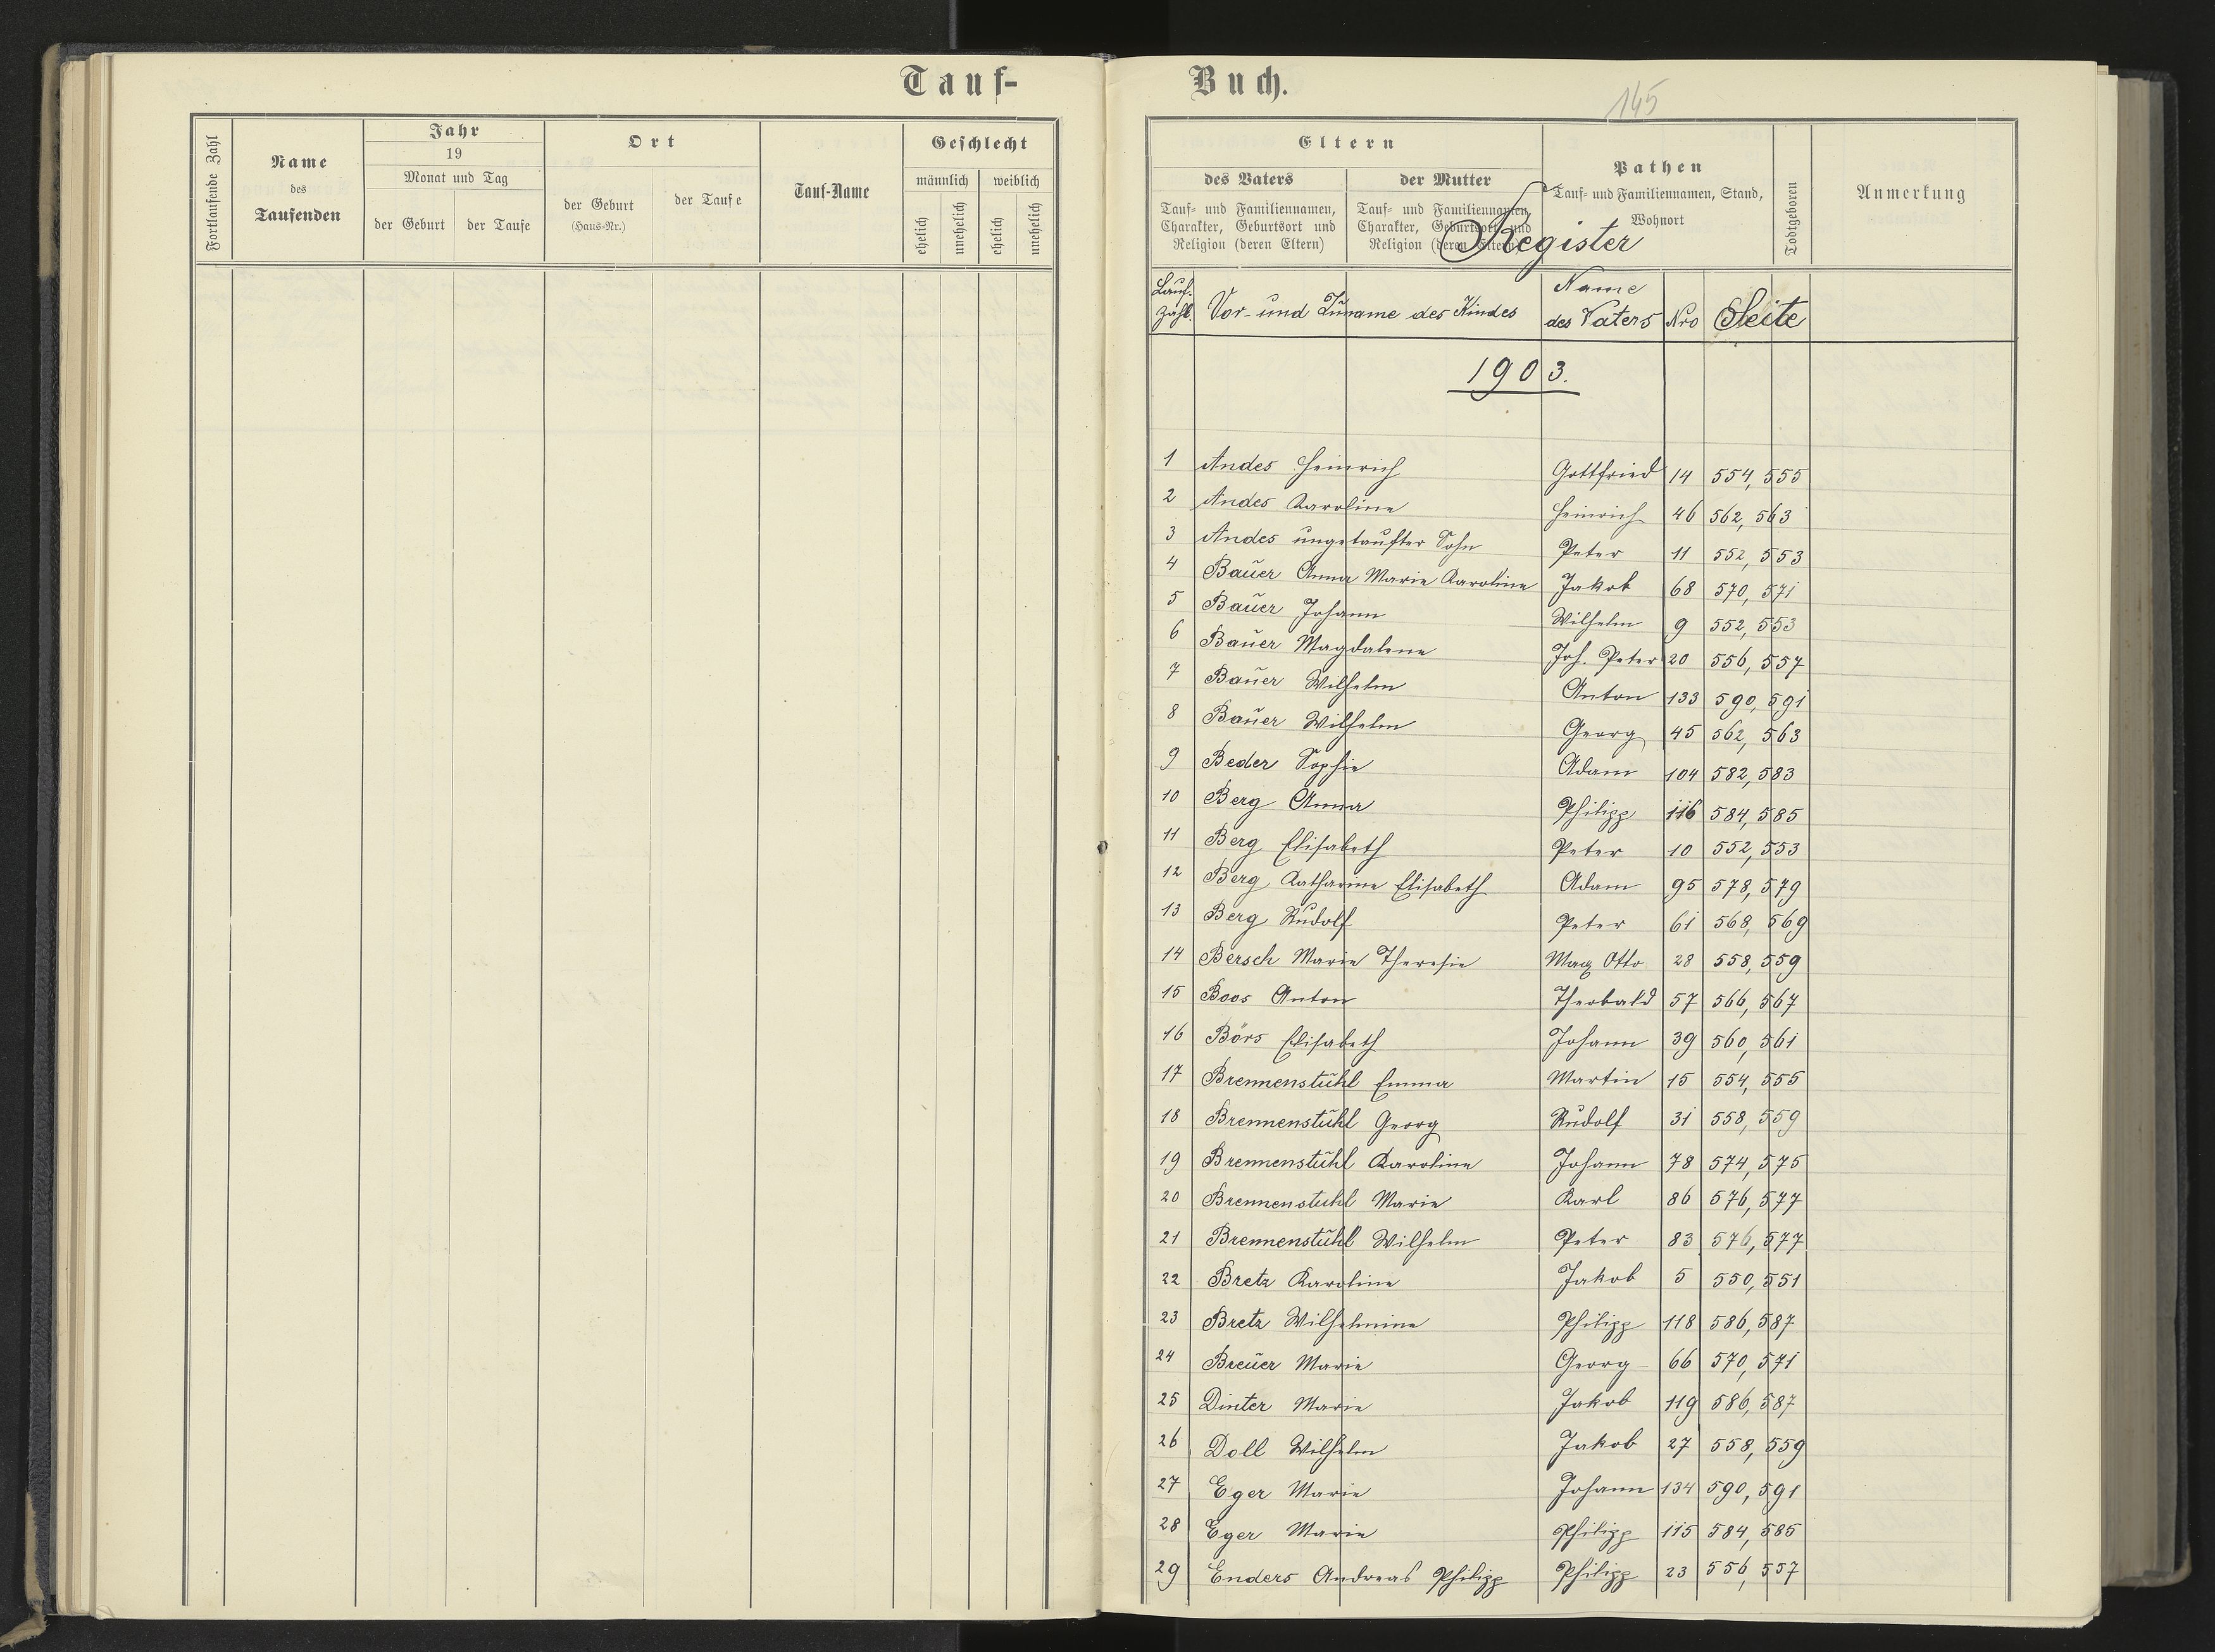 Tauf-
Fortlaufende Zahl
Name
des
Taufenden
Jahr
19
Monat und Tag
der Geburt
der Taufe
Ort
der Geburt
(Haus-Nr.)
der Taufe
Tauf-Name
Geschlecht
männlich
weiblich
ehelich
unehelich
ehelich
unehelich
Buch.
145
Eltern
des Vaters
Tauf- und Familiennamen,
Charakter, Geburtsort und
Religion (deren Eltern)
der Mutter
Tauf- und Familiennamen,
Charakter, Geburtsort und
Religion (deren Eltern)
Pathen
Tauf- und Familiennamen, Stand,
Wohnort
Todtgeboren
Anmerkung
Register
Lauf. Zahl. Vor- und Zuname des Kindes Name des Vaters Nro Seite
1903.
1 Andes Heinrich Gottfried 14 554, 555
2 Andes Karoline Heinrich 46 562, 563
3 Andes ungetaufter Sohn Peter 11 552, 553
4 Bauer Anna Marie Karoline Jakob 68 570, 571
5 Bauer Johann Wilhelm 9 552, 553
6 Bauer Magdalene Joh. Peter 20 556, 557
7 Bauer Wilhelm Anton 133 590, 591
8 Bauer Wilhelm Georg 45 562, 563
9 Beder Sophie Adam 104 582, 583
10 Berg Anna Philipp 116 584, 585
11 Berg Elisabeth Peter 10 552, 553
12 Berg Katharine Elisabeth Adam 95 578, 579
13 Berg Rudolf Peter 61 568, 569
14 Bersch Marie Theresie Max Otto 28 558, 559
15 Boos Anton Theobald 57 566, 567
16 Börs Elisabeth Johann 39 560, 561
17 Brennenstuhl Emma Martin 15 554, 555
18 Brennenstuhl Georg Rudolf 31 558, 559
19 Brennenstuhl Karoline Johann 78 574, 575
20 Brennenstuhl Marie Karl 86 576, 577
21 Brennenstuhl Wilhelm Peter 83 576, 577
22 Bretz Karoline Jakob 5 550, 551
23 Bretz Wilhelmine Philipp 118 586, 587
24 Breuer Marie Georg 66 570, 571
25 Dinter Marie Jakob 119 586, 587
26 Doll Wilhelm Jakob 27 558, 559
27 Eger Marie Johann 134 590, 591
28 Eger Marie Philipp 115 584, 585
29 Enders Andreas Philipp Philipp 23 556, 557